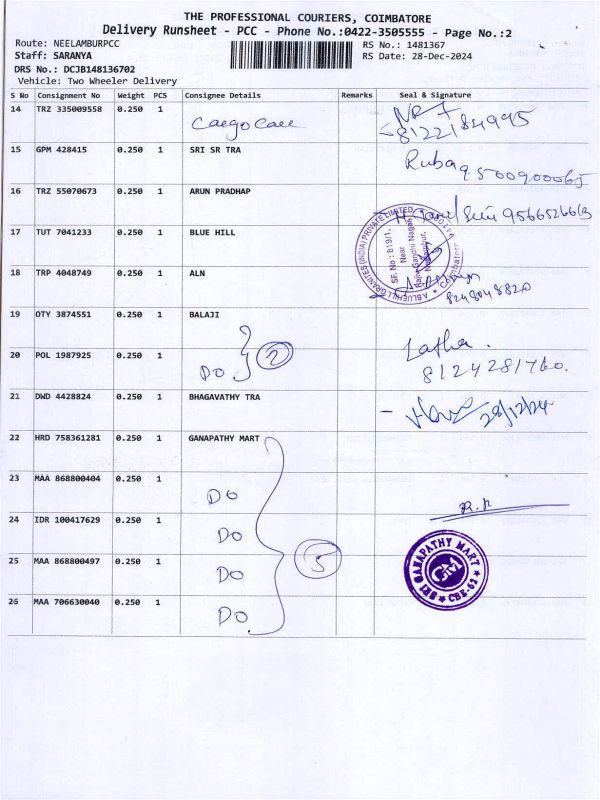 THE PROFESSIONAL COURIERS, COIMBATORE
Delivery Runsheet - PCC - Phone No.:0422-3505555 - Page No.:2
Route: NEELAMBURPCC
RS No.: 1481367
Staff: SARANYA
RS Date: 28-Dec-2024
DRS No.: DCJB148136702
Vehicle: Two Wheeler Delivery
S No Consignment No Weight PCS Consignee Details Remarks Seal & Signature
14 TRZ 335009558 0.250 1 Caego Cau
8122184995
15 GPM 428415 0.250 1 SRI SR TRA Ruba 9500900065
16 TRZ 55070673 0.250 1 ARUN PRADHAP 9566526663
17 TUT 7041233 0.250 1 BLUE HILL
ABLUEHILL GRANITES (INDIA) PRIVATE LIMITED
SF. No : 819/1,
Near
Rajiv Gandhi Nagar
Neelambur,
Coimbatore
18 TRP 4048749 0.250 1 ALN
8248048820
19 OTY 3874551 0.250 1 BALAJI
2
Latha.
20 POL 1987925 0.250 1 DO 8124281760.
21 DWD 4428824 0.250 1 BHAGAVATHY TRA 28/12/24
22 HRD 758361281 0.250 1 GANAPATHY MART
23 MAA 868800404 0.250 1 DO R.P
24 IDR 100417629 0.250 1 DO
5
SRI GANAPATHY MART
GM
CBE-62
25 MAA 868800497 0.250 1 DO
26 MAA 706630040 0.250 1 DO